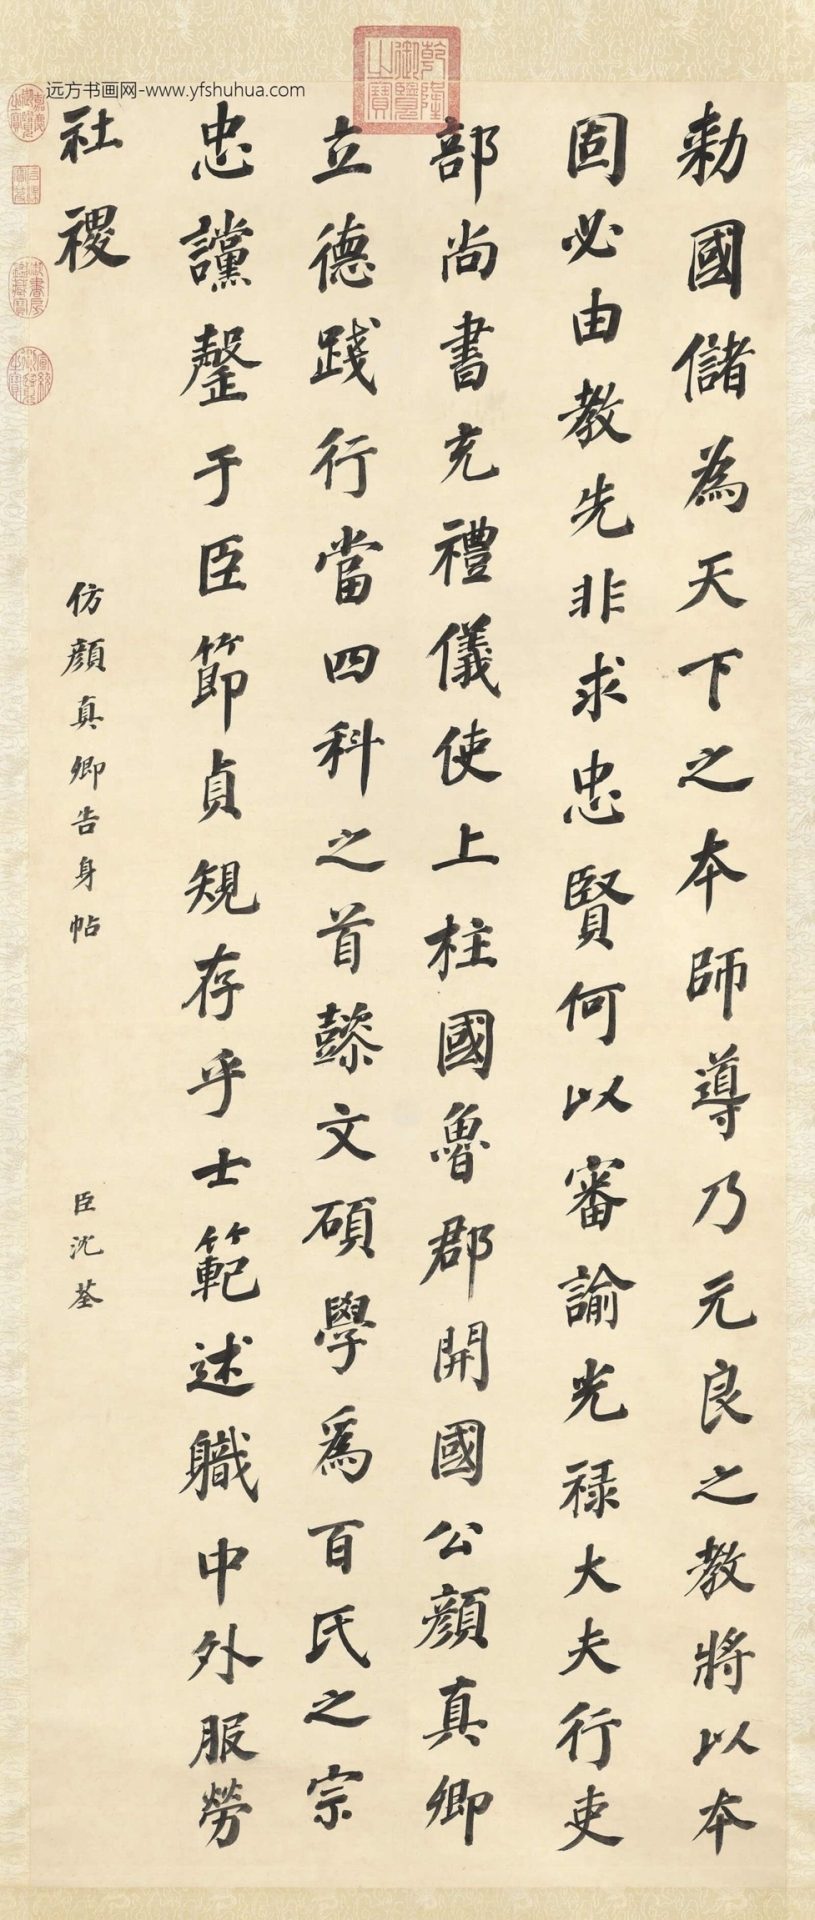 远方书画网-www.yfshuhua.com
乾隆御覽之寶
勅國儲為天下之本師導乃元良之教將以本
固必由教先非求忠賢何以審諭光禄大夫行吏
部尚書充禮儀使上柱國魯郡開國公顔真卿
立德踐行當四科之首懿文碩學爲百氏之宗
忠讜罄于臣節貞規存乎士範述軄中外服勞
社稷
仿顔真卿告身帖
臣沈荃
嘉慶御覽之寶
御書房鑑藏寶
宣統御覽之寶